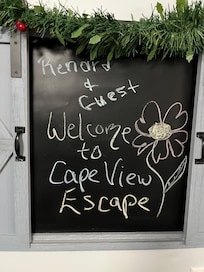 &
Guest
Welcome
to
Cape View
Escape